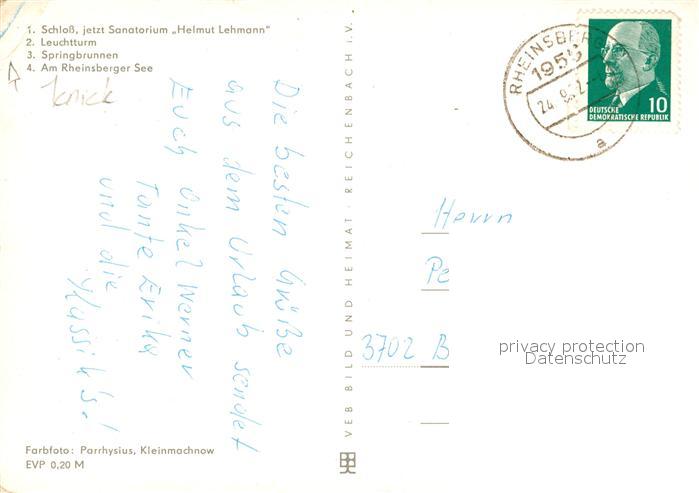 1. Schloß, jetzt Sanatorium „Helmut Lehmann"
2. Leuchtturm
3. Springbrunnen
4. Am Rheinsberger See
knick
Die besten Grüße
aus dem Urlaub sendet
Euch Onkel Werner
Tante Erika
und die
Farbfoto: Parrhysius, Kleinmachnow
EVP 0,20 M
VEB BILD UND HEIMAT · REICHENBACH i. V.
RHEINSBERG
1955
a
10
DEUTSCHE
DEMOKRATISCHE REPUBLIK
Herrn
Pe
3702 B
privacy protection
Datenschutz